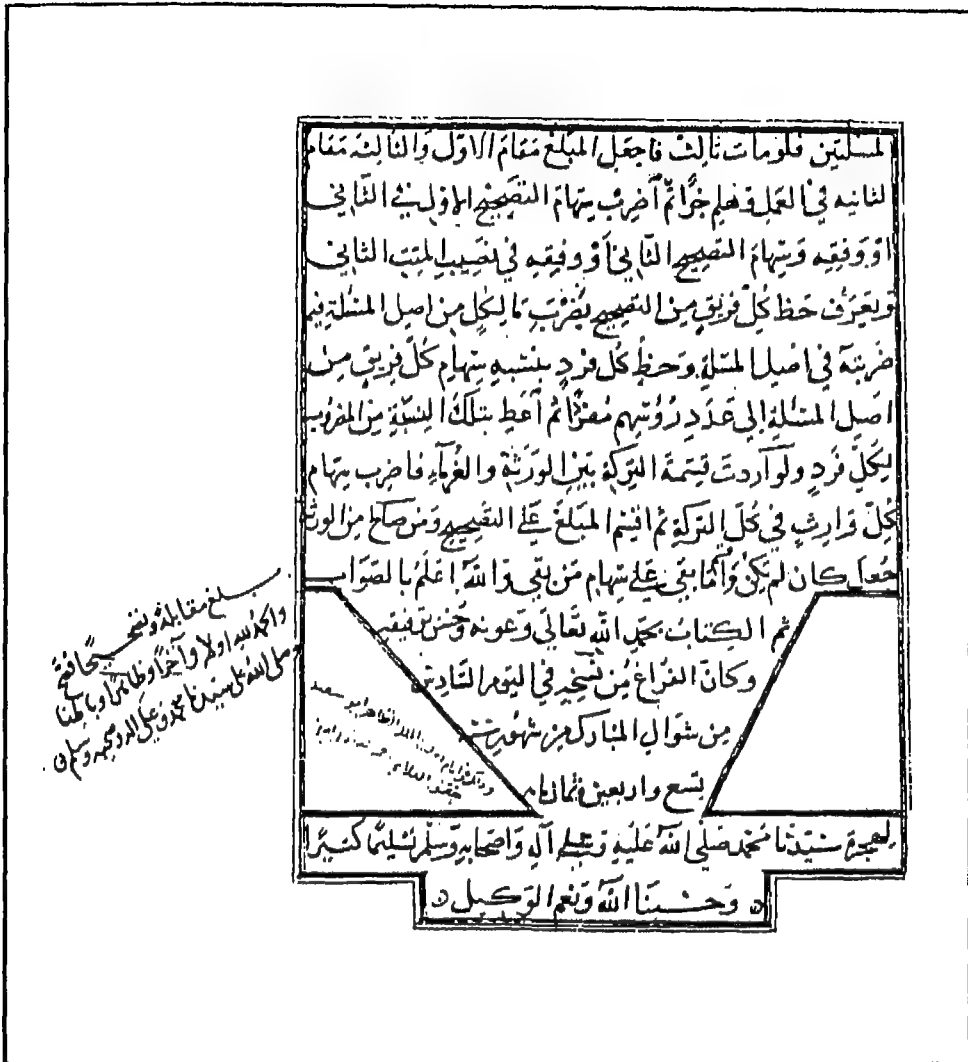 لمسئلتين فلو مات ثالث فاجعل المبلغ مقام الاول والثالثة مقام
لثانيه في العمل وهلم جرًّا ثم اضرب سهام التصحيح الاول في الثاني
او وفقه وسهام التصحيح الثاني أو وفقه في نصيب الميت الثاني
ويعرف حظ كل فريق من التصحيح بضرب ما لكل من اصل المسئلة فيما
ضربته في اصل المسئلة وحظ كل فرد بنسبه سهام كل فريق من
اصل المسئلة إلى عدد رؤسهم مفردًا ثم أعط بتلك النسبة من المضروب
لكل فرد ولو أردت قسمة التركة بين الورثة والغرماء فاضرب سهام
كل وارث في كل التركة ثم اقسم المبلغ على التصحيح ومن صالح من الورثة
جعل كان لم يكن واقسم بقى على سهام من بقي والله اعلم بالصواب
تم الكتاب بحمد الله تعالى وعونه وحسن توفيقه
وكان الفراغ من نسخه في اليوم السادس
من شوال المبارك من شهور سنة
تسع واربعين وثمانمائة
لهجرة سيدنا محمد صلى الله عليه وعلى آله واصحابه وسلم تسليمًا كثيرًا
وحسبنا الله ونعم الوكيل
بلغ مقابلة وتصحيحًا فصح
والحمد لله اولا وآخرًا وظاهرًا وباطنا
وصلى الله على سيدنا محمد وعلى آله وصحبه وسلم